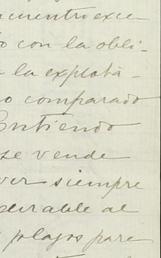 cuentro exce
o con la obli-
a la explota-
o comparado
Entiendo
se vende
ver siempre
derable al
plazos para